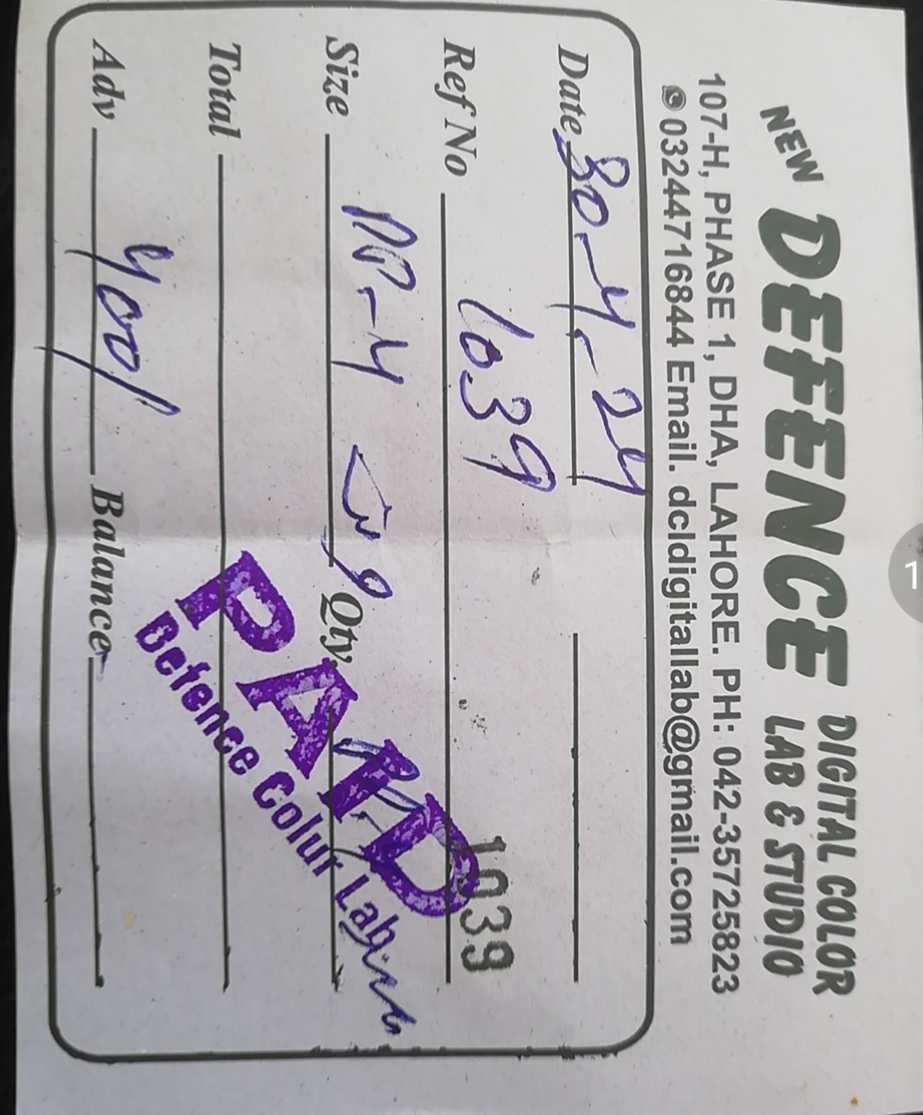 NEW DEFENCE DIGITAL COLOR LAB & STUDIO
107-H, PHASE 1, DHA, LAHORE. PH: 042-35725823
03244716844 Email. dcldigitallab@gmail.com
Date 30-4-24
Ref No 1039 1039
Size Qty.
Total
Adv 400/ Balance
PAID
Defence Colur Lab